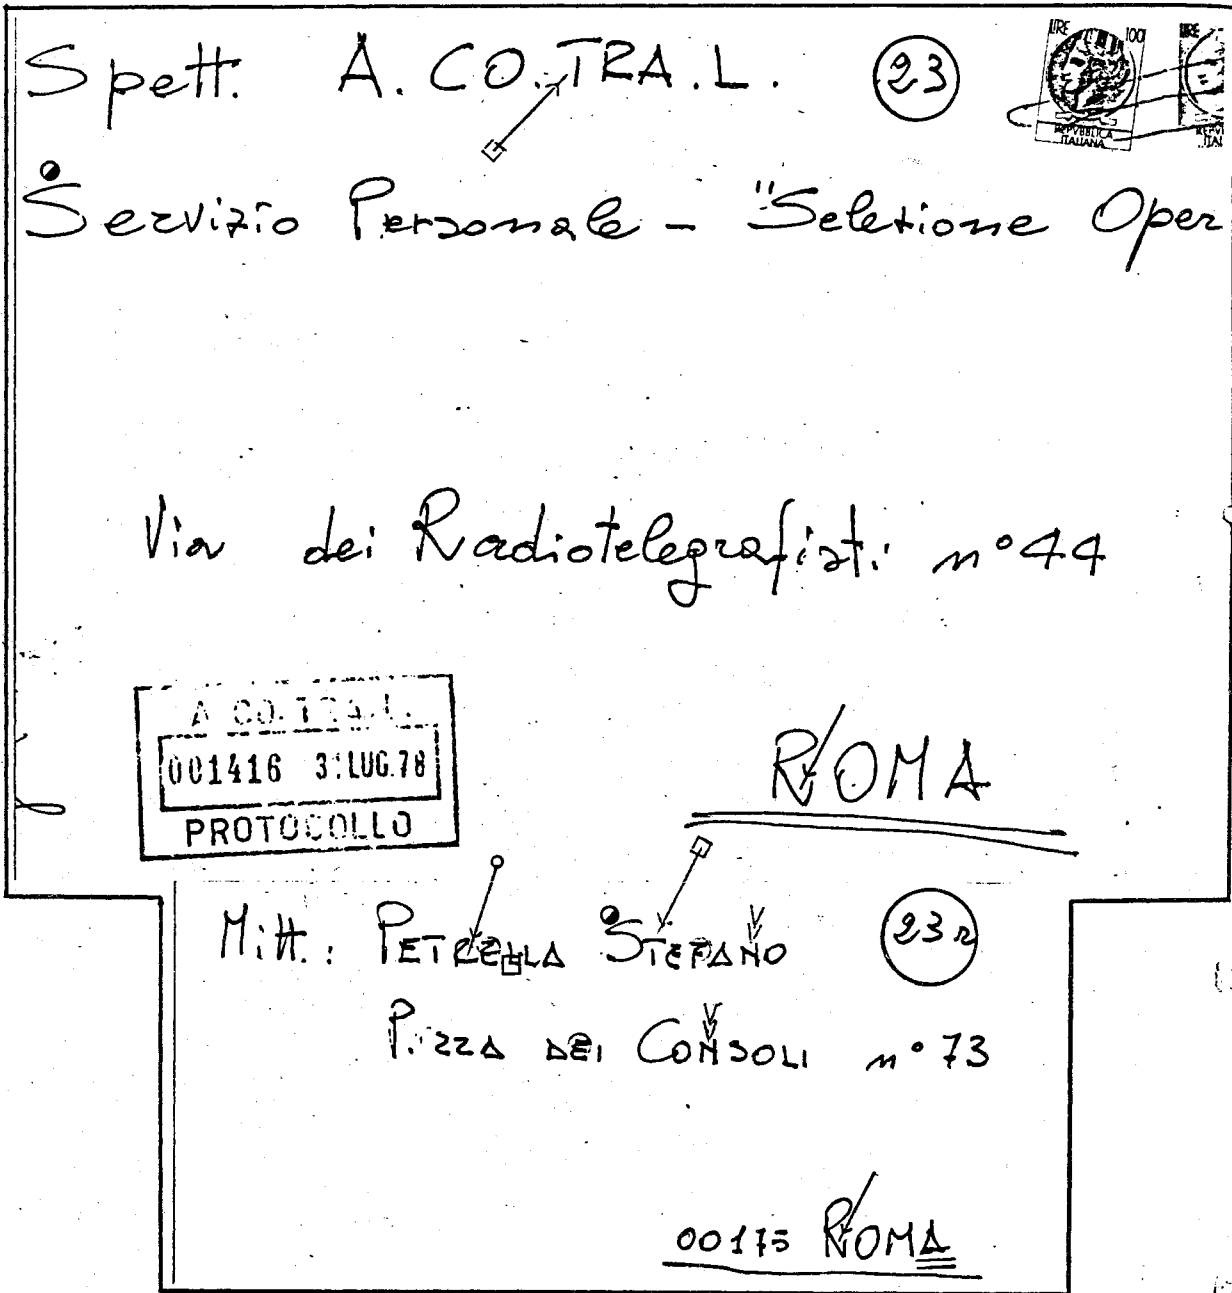 Spett. A.CO.TRA.L. 23
LIRE 100 LIRE
REPVBBLICA
ITALIANA
Servizio Personale - "Selezione Oper
Via dei Radiotelegrafisti n° 44
A.CO.TRA.L.
001416 31 LUG. 78
PROTOCOLLO
ROMA
Mitt.: PETRELLA STEFANO 23 r
P.zza DEI CONSOLI n° 73
00175 ROMA